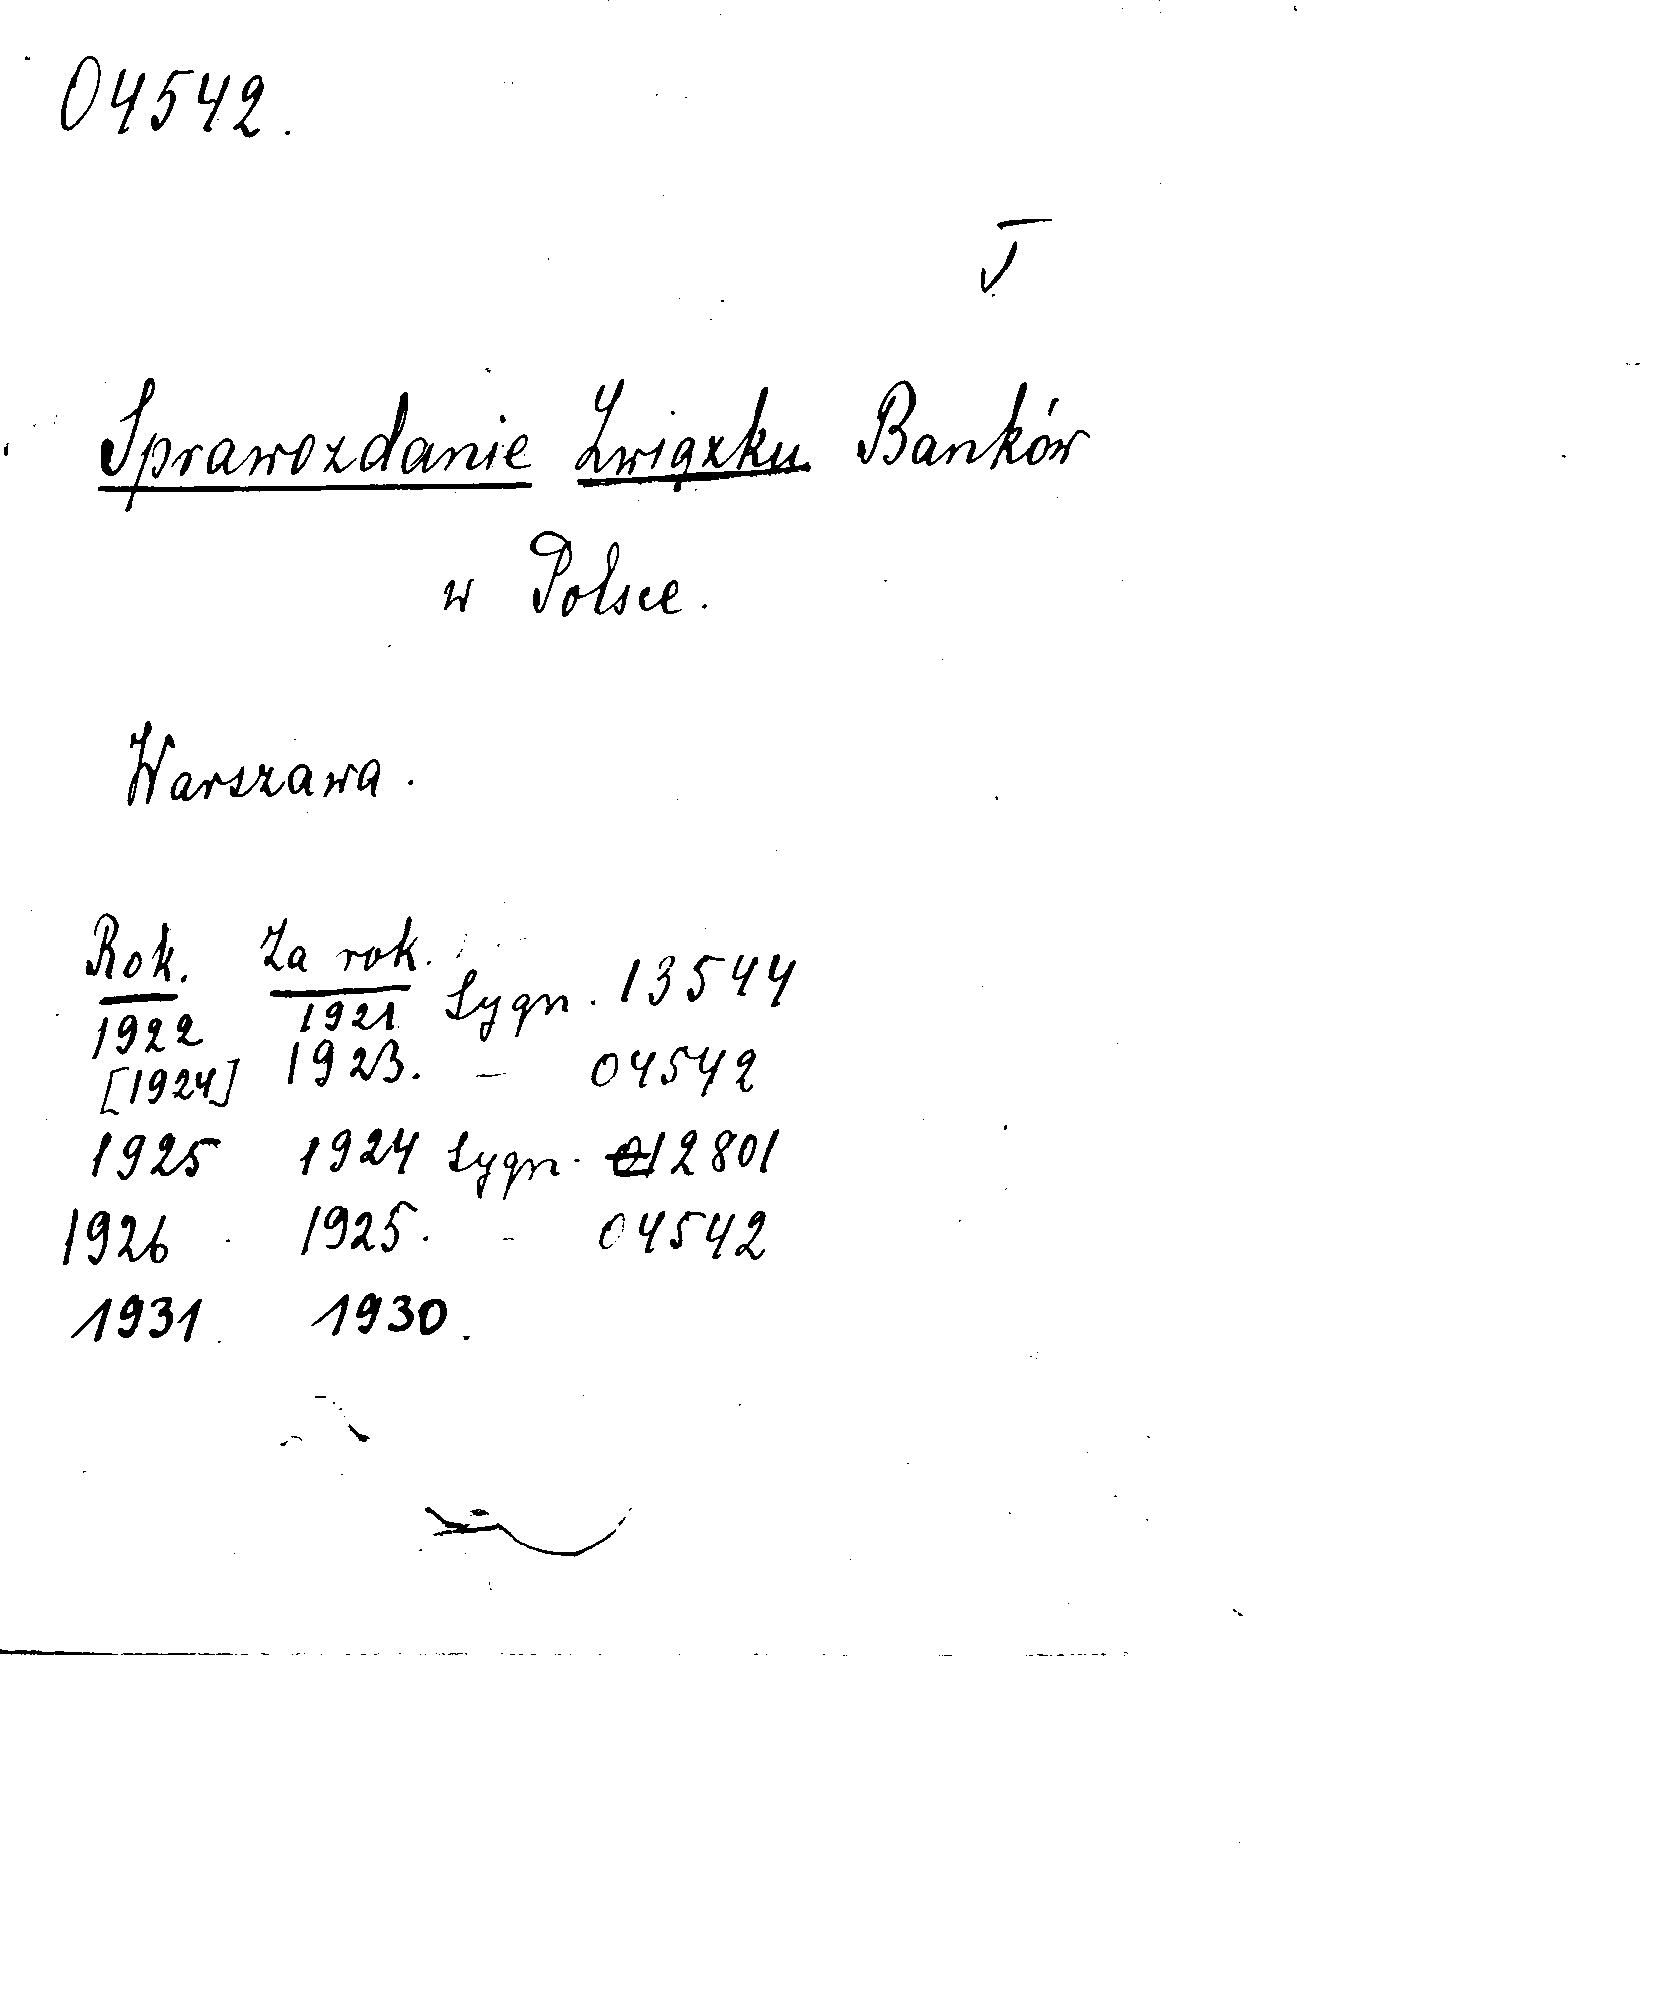 04542.
Sprawozdanie Związku Banków
w Polsce.
Warszawa.
Rok. Za rok.
1922 1921 Sygn. 13544
[1924] 1923. - 04542
1925 1924 Sygn. 12801
1926 1925. - 04542
1931 1930.